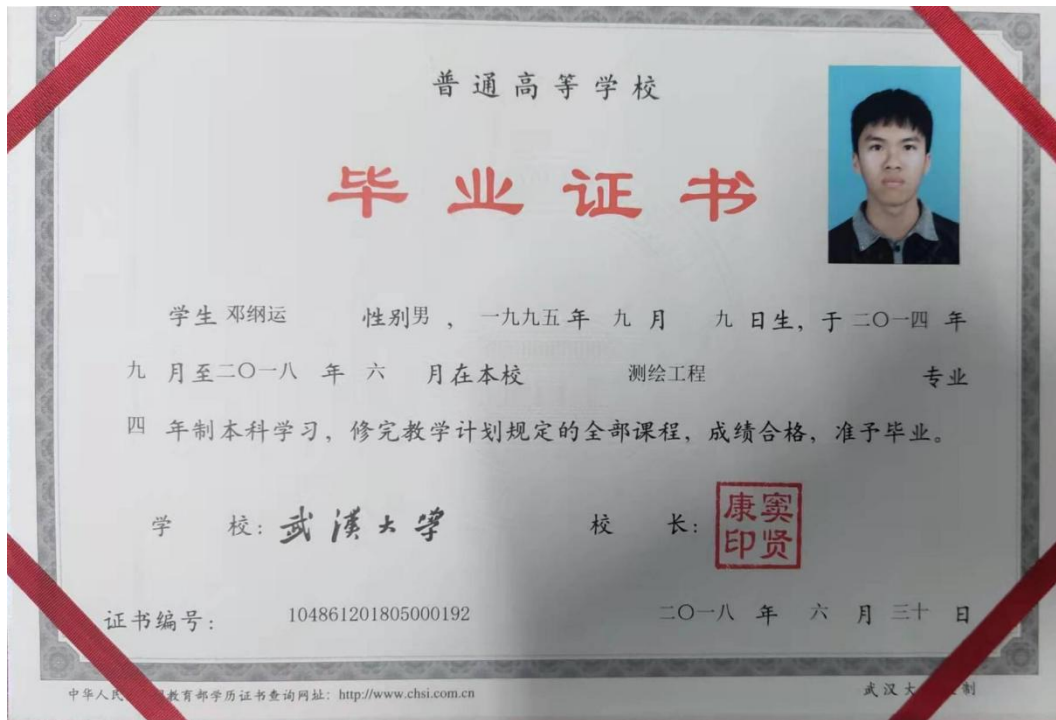 普通高等学校
毕业证书
学生 邓纲运 性别男 ，一九九五年 九 月 九 日生，于二〇一四 年
九 月至二〇一八 年 六 月在本校 测绘工程 专业
四 年制本科学习，修完教学计划规定的全部课程，成绩合格，准予毕业。
学 校：武漢大学 校 长：窦贤康印
证书编号： 104861201805000192 二〇一八 年 六 月 三十 日
中华人民 教育部学历证书查询网址：http://www.chsi.com.cn 武汉大 制